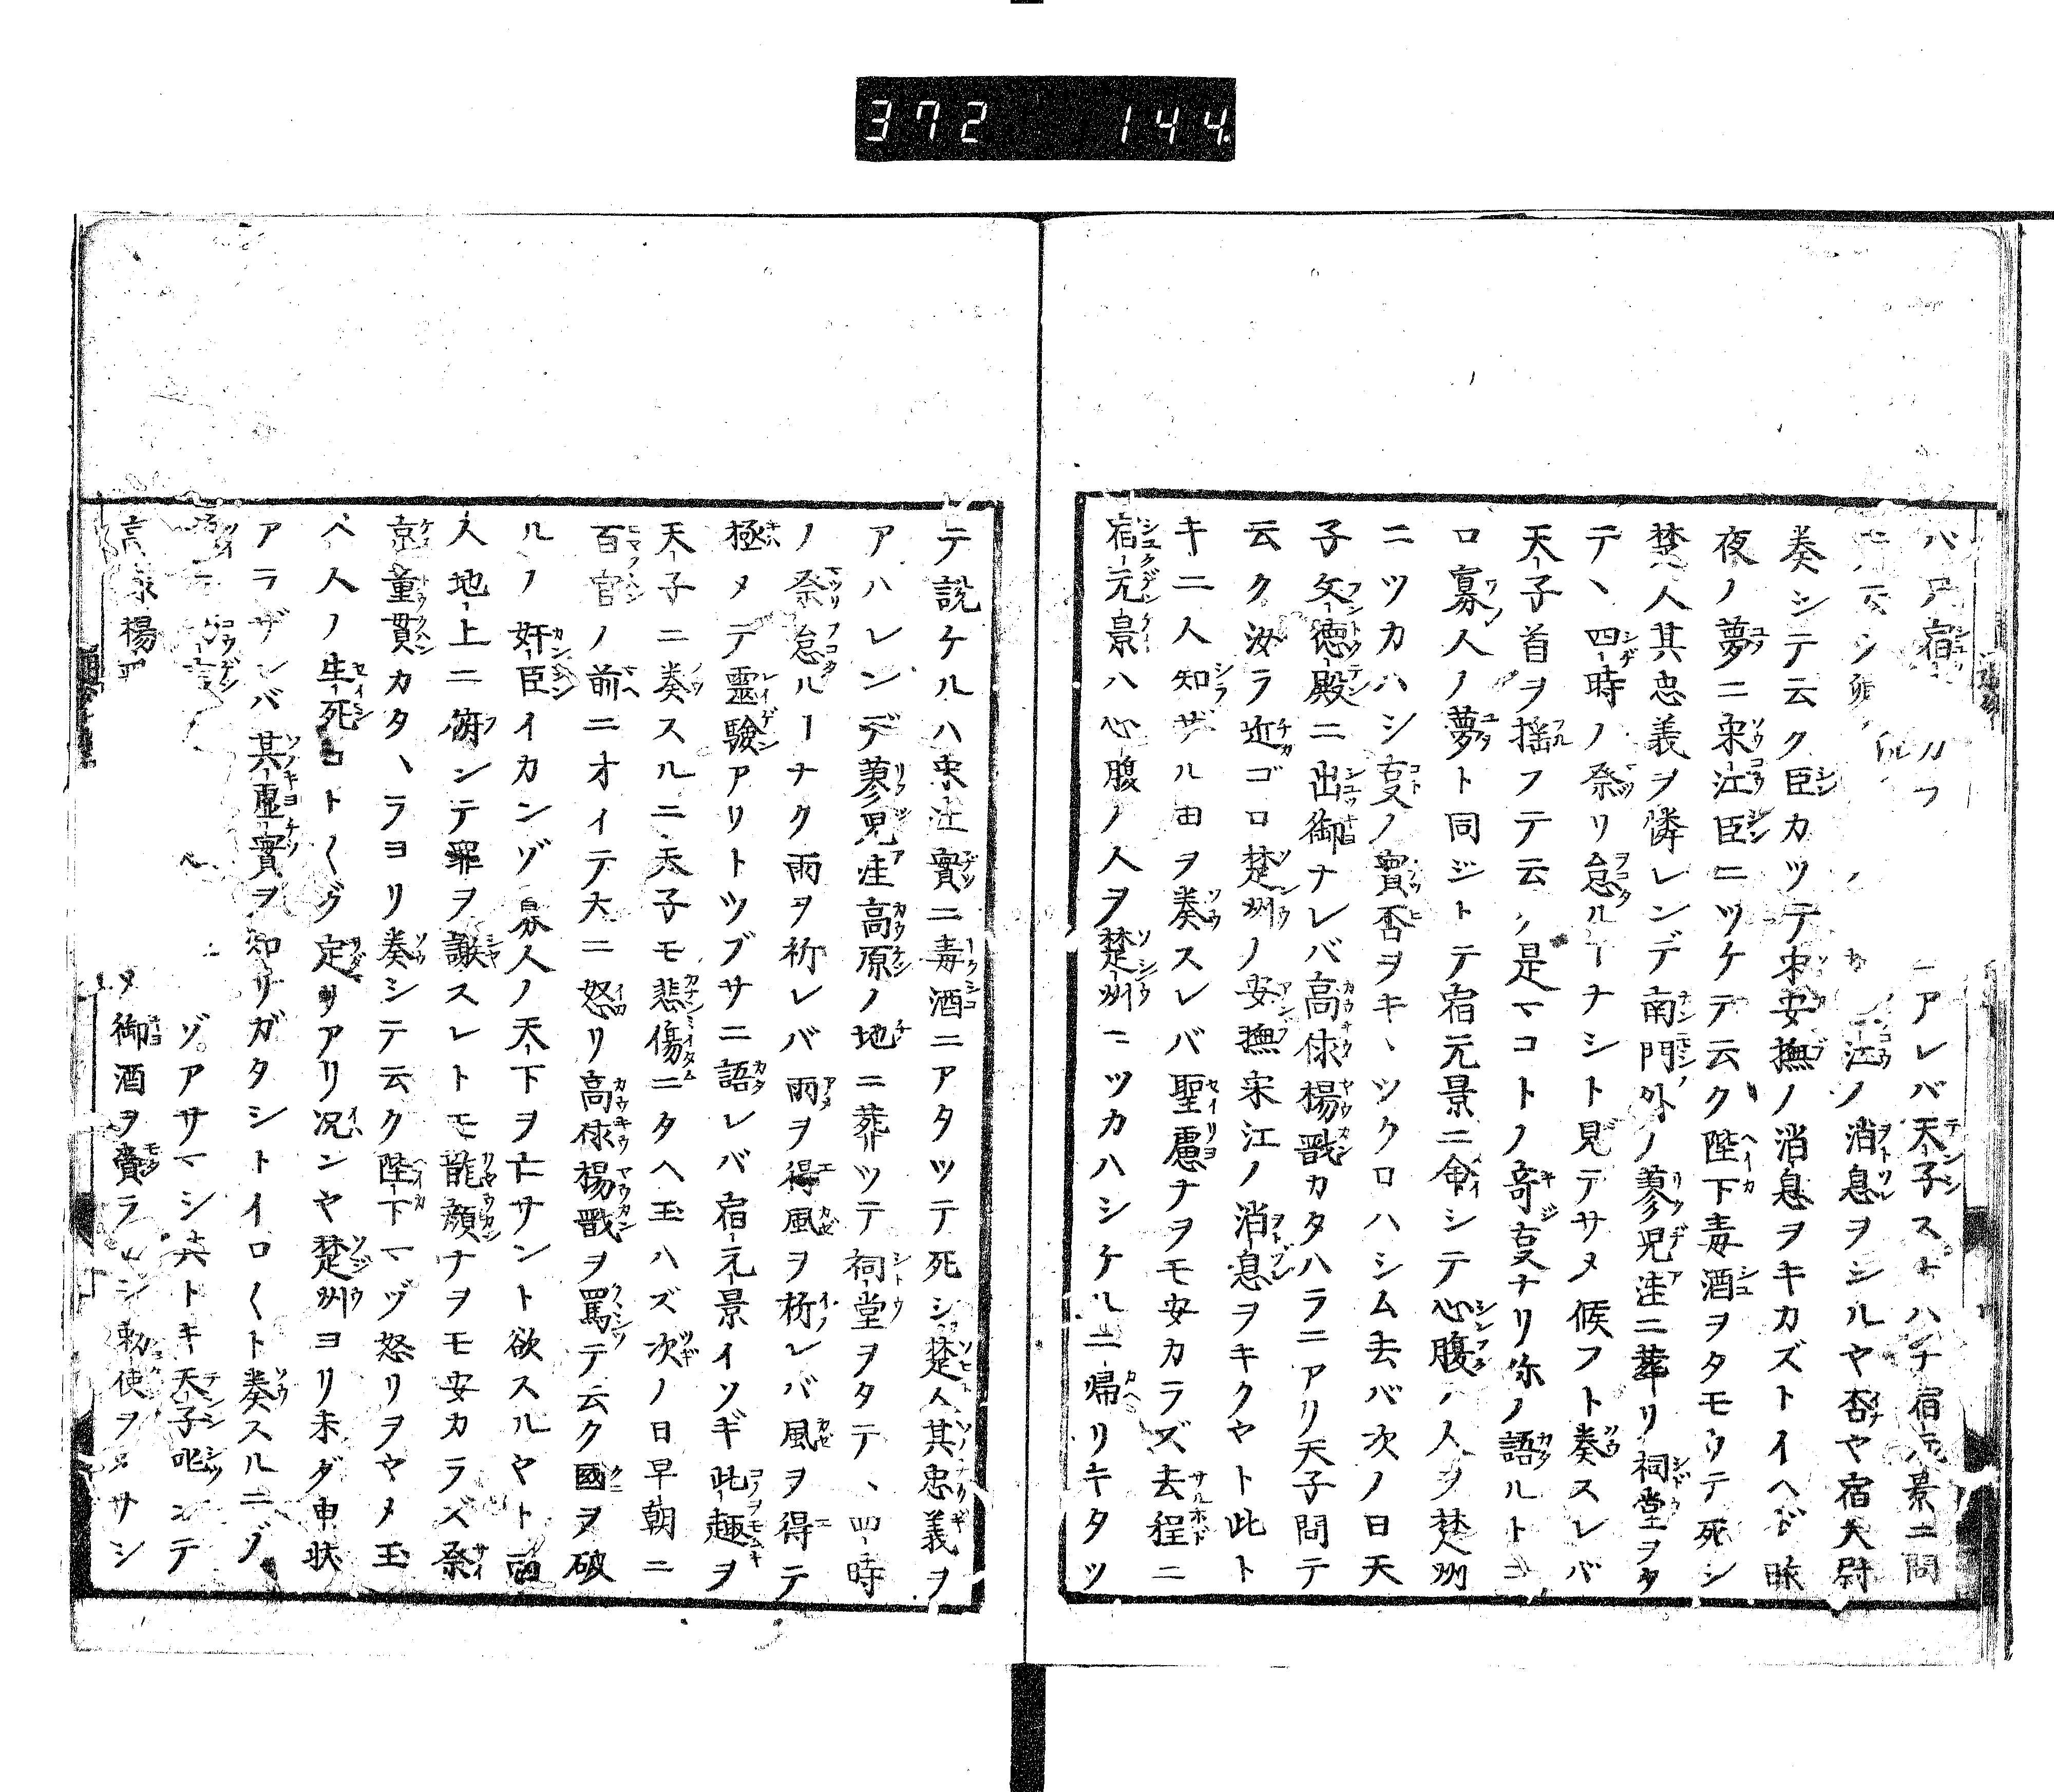 372 144
ニアレバ天子スデハチ宿元景ニ問
江ノ消息ヲシルヤ否ヤ宿大尉
奏シテ云ク臣カツテ宋安撫ノ消息ヲキカズトイヘド昨
夜ノ夢ニ宋江臣ニツケテ云ク陛下毒酒ヲタモウテ死シ
楚人其忠義ヲ隣レンデ南門外ノ蓼児洼ニ葬リ祠堂ヲタ
テヽ四時ノ祭リ怠ルヿナシト見テサメ候フト奏スレバ
天子首ヲ揺フテ云ク是マコトノ奇事ナリ你ノ語ルトコ
ロ寡人ノ夢ト同ジトテ宿元景ニ命シテ心腹ノ人ヲ楚州
ニツカハシ事ノ實否ヲキヽツクロハシム去バ次ノ日天
子文徳殿ニ出御ナレバ高俅楊戩カタハラニアリ天子問テ
云ク汝ラ近ゴロ楚州ノ安撫宋江ノ消息ヲキクヤト此ト
キ二人知ザル由ヲ奏スレバ聖慮ナヲモ安カラズ去程ニ
宿元景ハ心腹ノ人ヲ楚州ニツカハシケルニ帰リキタツ
テ説ケルハ宋江實ニ毒酒ニアタツテ死シ楚人其忠義ヲ
アハレンデ蓼児洼高原ノ地ニ葬ツテ祠堂ヲタテヽ四時
ノ祭怠ルヿナク雨ヲ祈レバ雨ヲ得風ヲ祈レバ風ヲ得テ
極メテ靈験アリトツブサニ語レバ宿元景イソギ此趣ヲ
天子ニ奏スルニ天子モ悲傷ニタヘ玉ハズ次ノ日早朝ニ
百官ノ前ニオイテ大ニ怒リ高俅楊戩ヲ罵テ云ク國ヲ破
ルノ奸臣イカンゾ寡人ノ天下ヲ亡サント欲スルヤト
人地上ニ俯ンテ罪ヲ謝スレトモ龍顔ナヲモ安カラズ蔡
京童貫カタヽラヨリ奏シテ云ク陛下マヅ怒リヲヤメ玉
ヘ人ノ生死コト〱ク定リアリ况ンヤ楚州ヨリ未ダ申状
アラザンバ其虚實ヲ知リガタシトイロ〱ト奏スルニゾ
ゾアサマシ其トキ天子叱シテ
楊 御酒ヲ賷ラ 勅使ヲメサシ